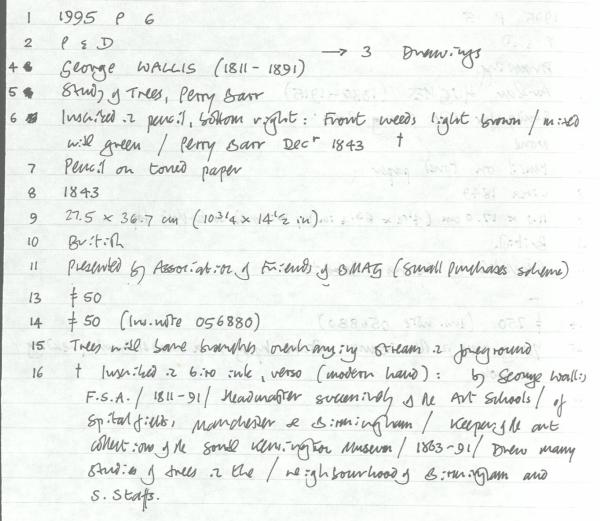 1 1995 P 6
2 P & D → 3 Drawings
4 George WALLIS (1811-1891)
5 Study of Trees, Perry Barr
6 Inscribed in pencil, bottom right: Front weeds light brown / mixed
with green / Perry Barr Decr 1843 †
7 Pencil on toned paper
8 1843
9 27.5 x 36.7 cm (10 3/4 x 14 1/2 in)
10 British
11 Presented by Association of Friends of BMAG (Small purchases scheme)
13 £50
14 £50 (Inv. note 056880)
15 Trees with bare branches overhanging stream in foreground
16 † Inscribed in biro ink, verso (modern hand): by George Wallis
F.S.A. / 1811-91 / Headmaster successively of the Art Schools / of
Spitalfields, Manchester & Birmingham / Keeper of the art
collections of the South Kensington Museum / 1863-91 / Drew many
studies of trees in the / neighbourhood of Birmingham and
S. Staffs.